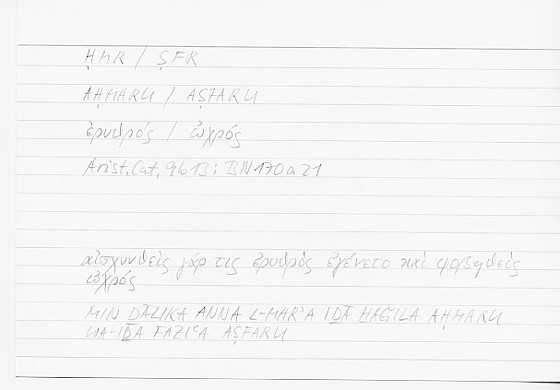 ḤMR / ṢFR
AḤMARU / AṢFARU
ἐρυθρός / ὠχρός
Arist. Cat. 9b13 : BN 170a21
αἰσχυνθεὶς γάρ τις ἐρυθρὸς ἐγένετο καὶ φοβηθεὶς
ὠχρός
MIN ḎĀLIKA ANNA L-MARʾA IḎĀ ḪAǦILA AḤMARU
WA-IḎĀ FAZIʿA AṢFARU